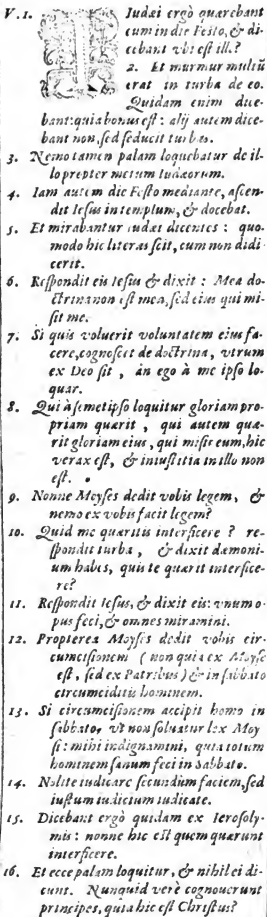 V. 1. Iudæi ergò quærebant
eum in die Festo, & di-
cebant vbi est ill.?
2. Et murmur multũ
erat in turba de eo.
Quidam enim dice-
bant: quia bonus est: alij autem dice-
bant non, sed seducit turbas.
3. Nemo tamen palam loquebatur de il-
lo propter metum Iudæorum.
4. Iam autem die Festo mediante, ascen-
dit Iesus in templum, & docebat.
5. Et mirabantur Iudæi dicentes: quo-
modo hic literas scit, cum non didi-
cerit.
6. Respondit eis Iesus & dixit: Mea do-
ctrina non est mea, sed eius qui mi-
sit me.
7. Si quis voluerit voluntatem eius fa-
cere, cognoscet de doctrina, vtrum
ex Deo sit, an ego à me ipso lo-
quar.
8. Qui à semetipso loquitur gloriam pro-
priam quærit, qui autem quæ-
rit gloriam eius, qui misit eum, hic
verax est, & iniustitia in illo non
est.
9. Nonne Moyses dedit vobis legem, &
nemo ex vobis facit legem?
10. Quid me quæritis interficere? re-
spondit turba, & dixit dæmoni-
um habes, quis te quærit interfice-
re?
11. Respondit Iesus, & dixit eis: vnum o-
pus feci, & omnes miramini.
12. Propterea Moyses dedit vobis cir-
cumcisionem (non quia ex Moyse
est, sed ex Patribus) & in sabbato
circumciditis hominem.
13. Si circumcisionem accipit homo in
sabbato, vt non soluatur lex Moy
si: mihi indignamini, quia totum
hominem sanum feci in Sabbato.
14. Nolite iudicare secundùm faciem, sed
iustum iudicium iudicate.
15. Dicebant ergò quidam ex Ierosoly-
mis: nonne hic est quem quærunt
interficere.
16. Et ecce palam loquitur, & nihil ei di-
cunt. Nunquid verè cognouerunt
principes, quia hic est Christus?